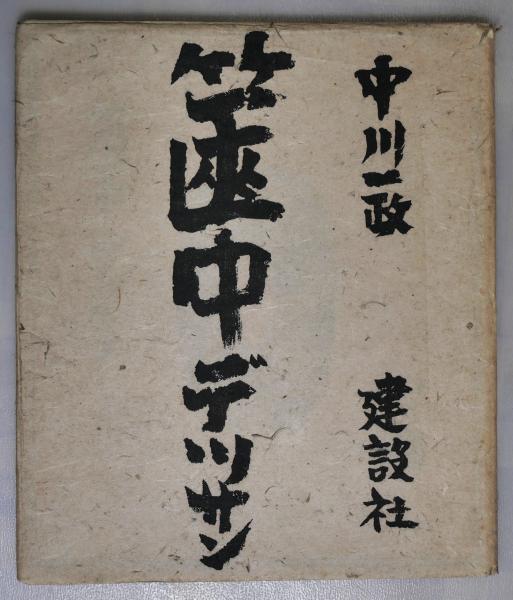 中川一政
建設社
篋中デツサン